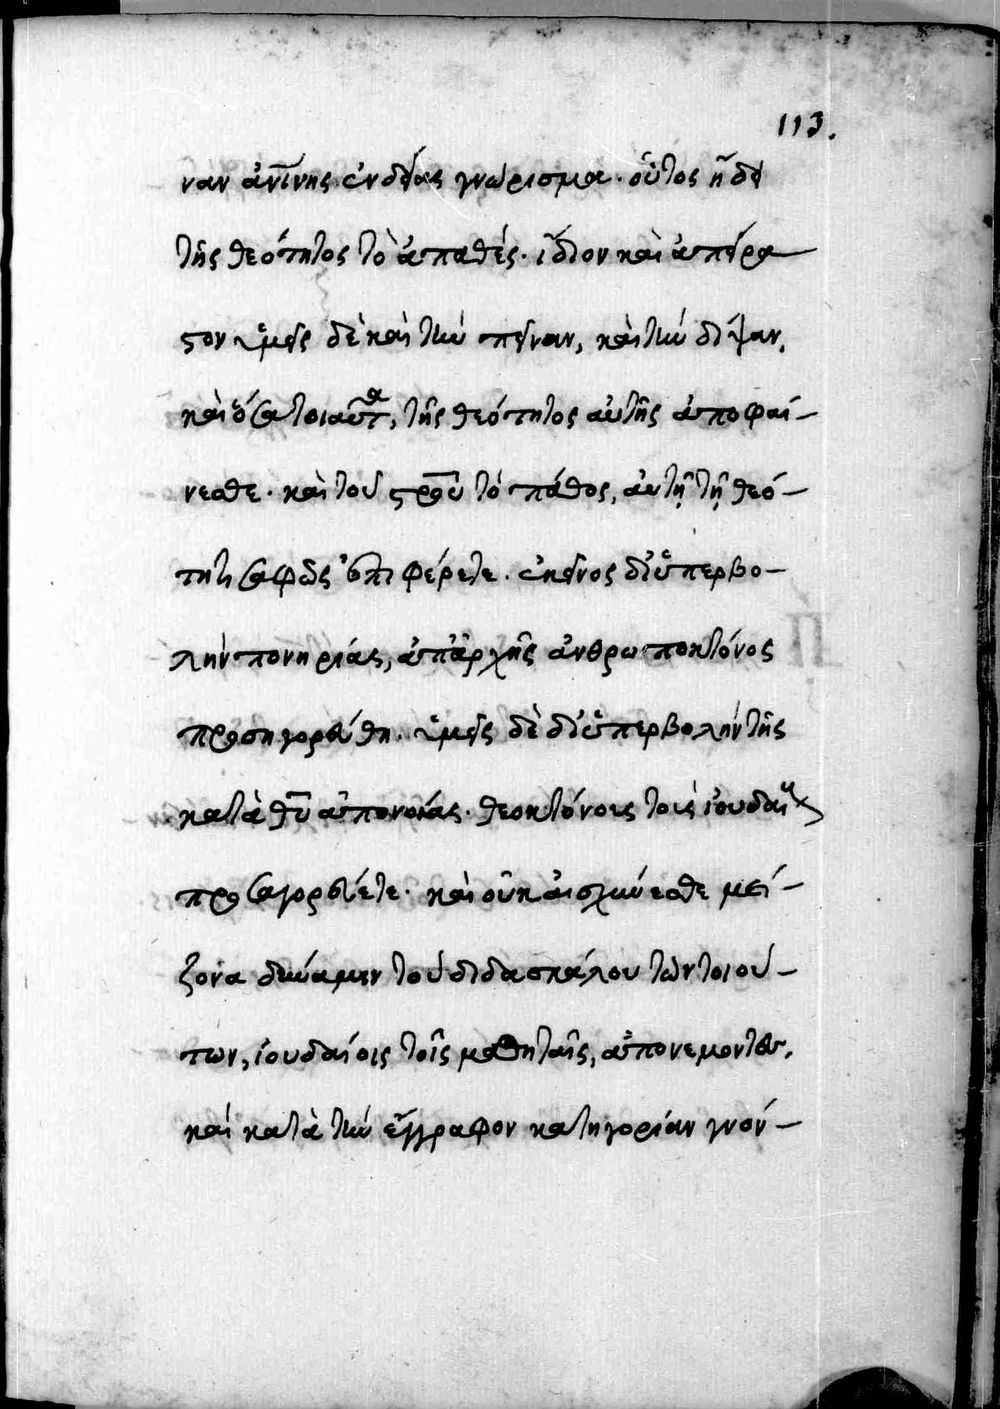 113.
ναν ἀν̅ι̅νης ἐνδείας γνώρισμα. οὗτος ἤδει
τῆς θεότητος τὸ ἀπαθές. ἴδιον καὶ ἀπείρα
στον ὑμεῖς δὲ καὶ τὴν πεῖναν, καὶ τὴν δίψαν,
καὶ ὅσα τοιαῦτα, τῆς θεότητος αὐτῆς ἀποφαί-
νεσθε. καὶ τοῦ σ̅ρ̅ου τὸ πάθος, αὐτῇ τῇ θεό-
τητι σαφῶς ἐπιφέρετε. ἐκεῖνος δι' ὑπερβο-
λὴν πονηρίας, ἀπ' ἀρχῆς ἀνθρωποκτόνος
προσηγορεύθη. ὑμεῖς δὲ δι' ὑπερβολὴν τῆς
κατὰ θ̅υ̅ ἀπονοίας. θεοκτόνους τοὺς ἰουδαί
προσαγορεύετε. καὶ οὐκ αἰσχύνεσθε μεί-
ζονα δύναμιν τοῦ διδασκάλου τῶν τοιού-
των, ἰουδαίοις τοῖς μαθηταῖς, ἀπονέμοντες.
καὶ κατὰ τὴν ἔγγραφον κατηγορίαν γνόν-